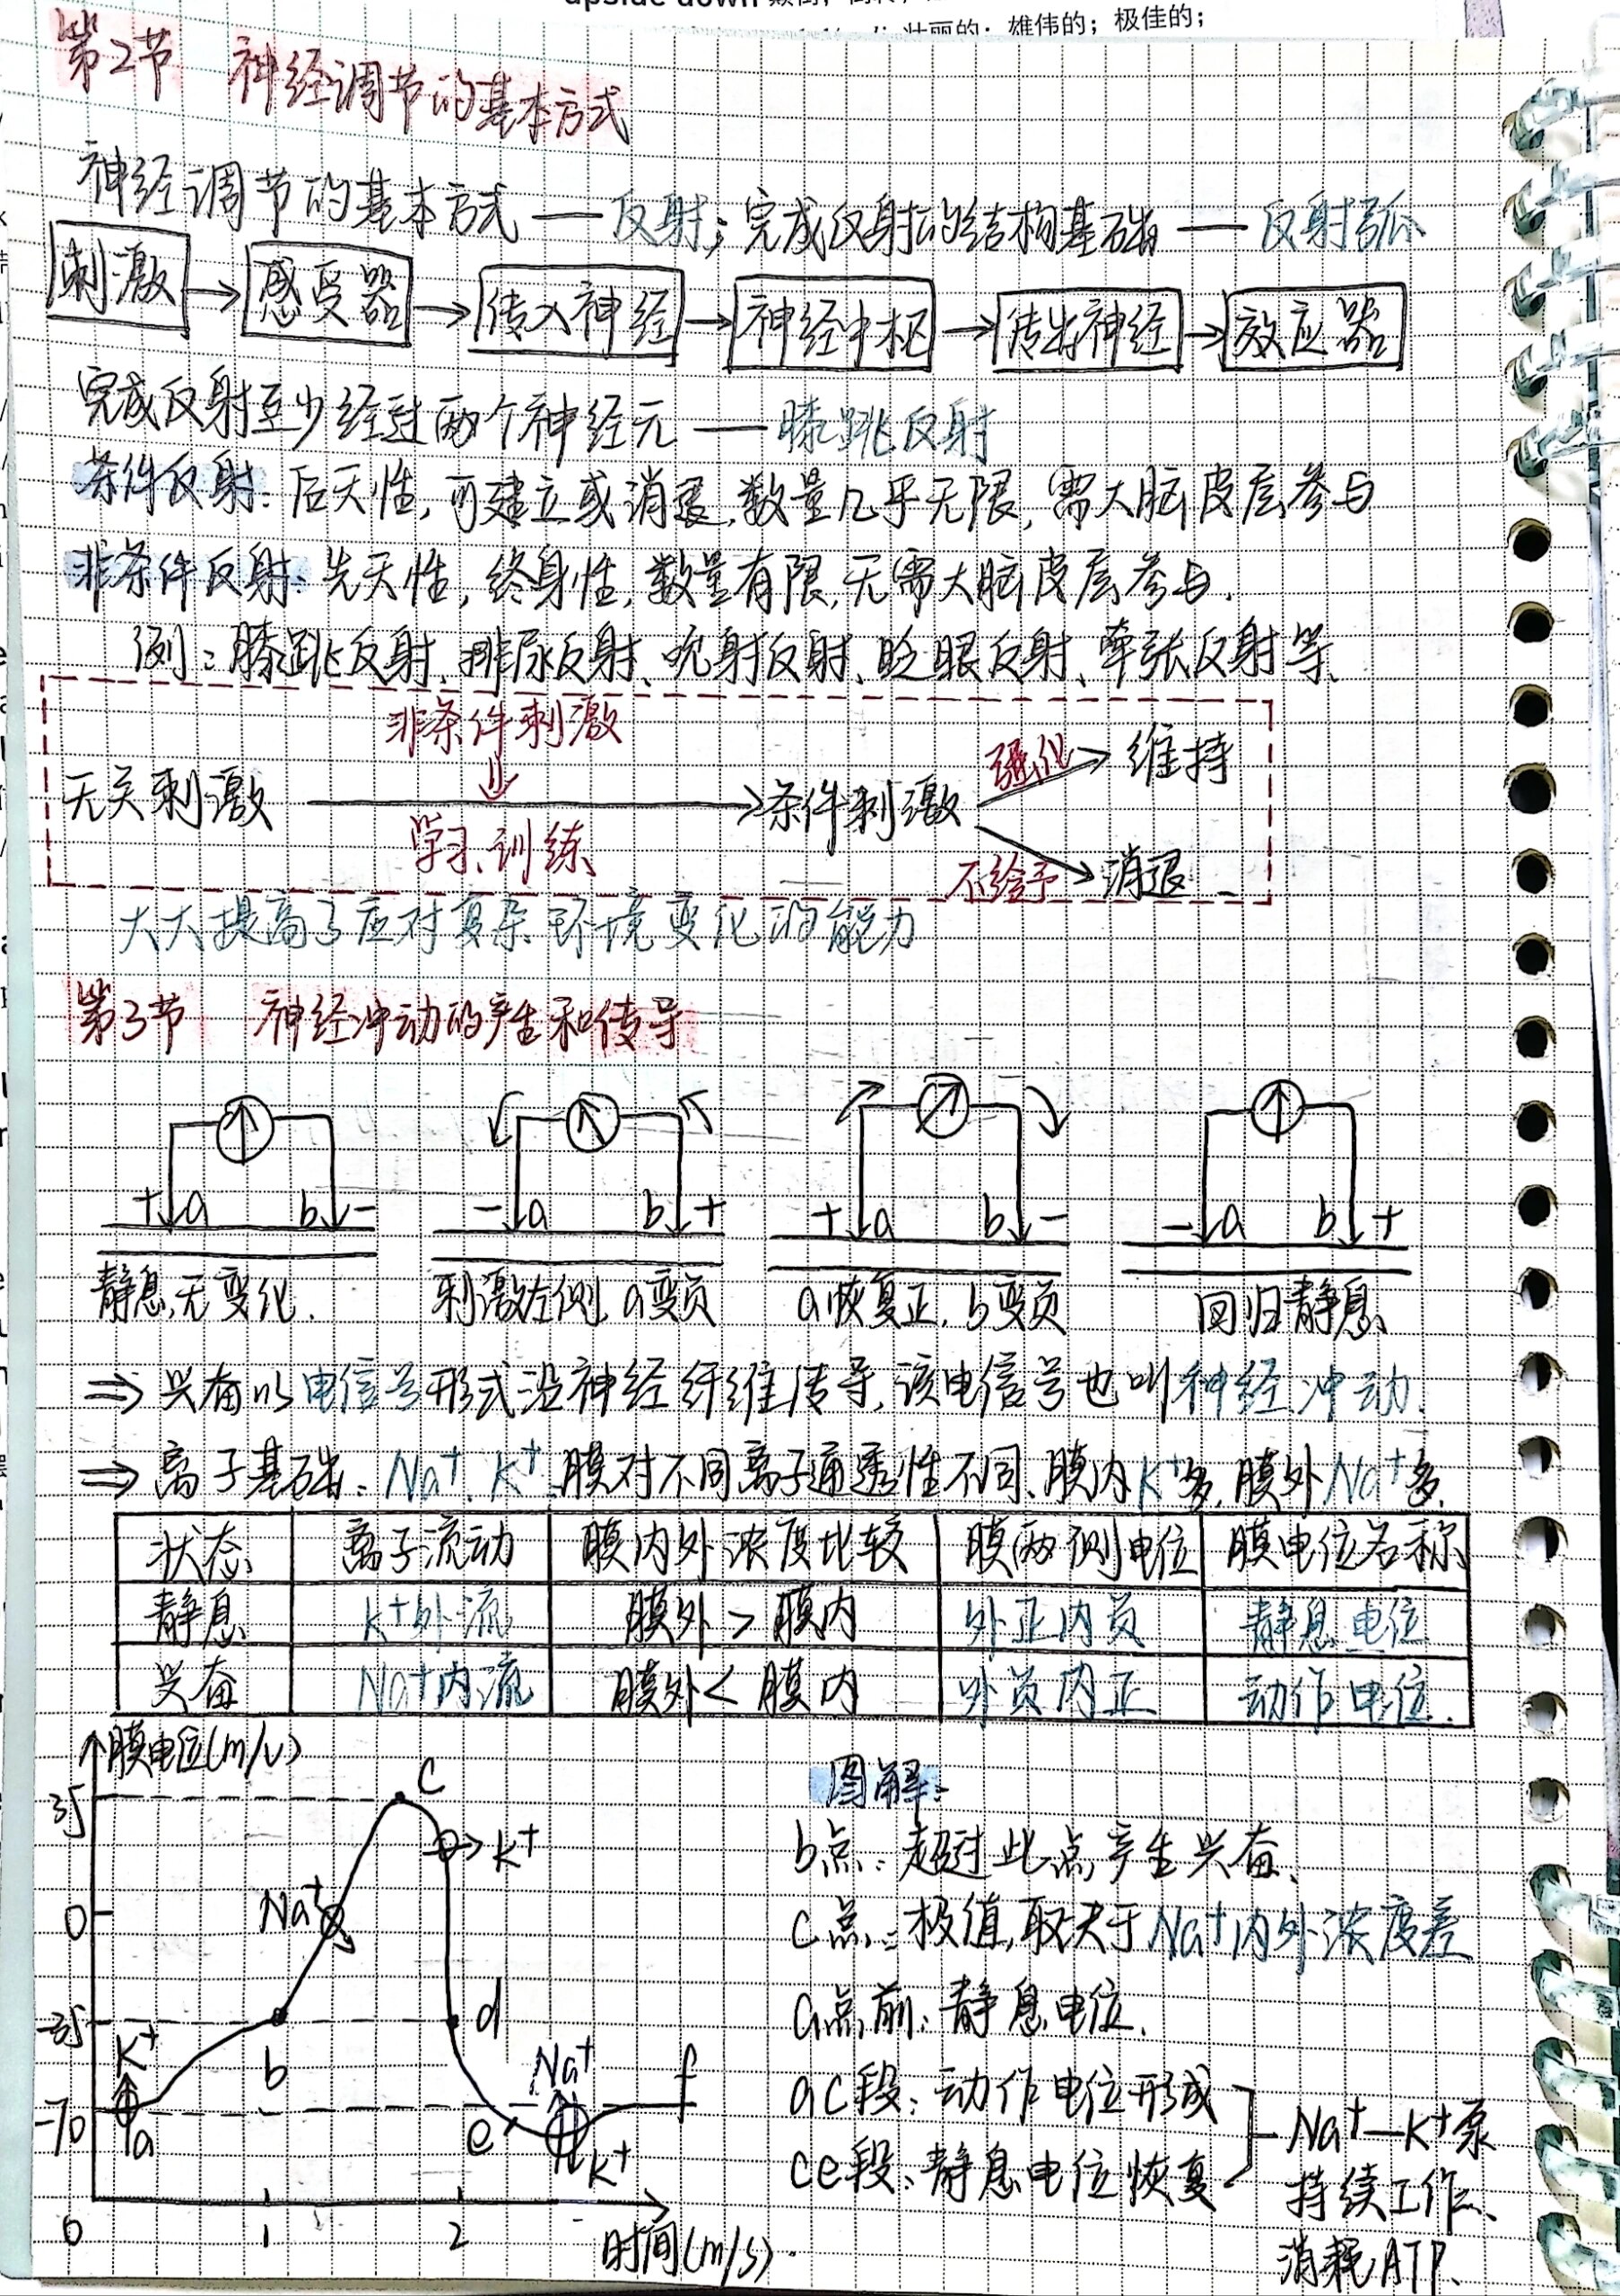 壮丽的；雄伟的；极佳的；
第2节 神经调节的基本方式
神经调节的基本方式 — 反射；完成反射的结构基础 — 反射弧
刺激 → 感受器 → 传入神经 → 神经中枢 → 传出神经 → 效应器
完成反射至少经过两个神经元 — 膝跳反射
条件反射：后天性，可建立或消退，数量几乎无限，需大脑皮层参与
非条件反射：先天性，终身性，数量有限，无需大脑皮层参与.
例：膝跳反射、排尿反射、吮射反射、眨眼反射、牵张反射等、
非条件刺激
强化 → 维持
无关刺激 → 条件刺激
学习、训练
不给予 → 消退
大大提高了应对复杂环境变化的能力
第3节 神经冲动的产生和传导
+ a b - - a b + + a b - - a b +
静息,无变化. 刺激左侧,a变负 a恢复正,b变负 回归静息
⇒ 兴奋以电信号形式沿神经纤维传导,该电信号也叫神经冲动.
⇒ 离子基础：Na⁺、K⁺,膜对不同离子通透性不同、膜内K⁺多,膜外Na⁺多.
状态 离子流动 膜内外浓度比较 膜两侧电位 膜电位名称
静息 K⁺外流 膜外 > 膜内 外正内负 静息电位
兴奋 Na⁺内流 膜外 < 膜内 外负内正 动作电位.
膜电位(m/v)
35
c
K⁺
Na⁺
0
-35
d
K⁺
b
Na⁺
f
-70
a
e
K⁺
0 1 2 时间(m/s).
图解：
b点：超过此点,产生兴奋、
c点：极值,取决于Na⁺内外浓度差
a点前：静息电位.
ac段：动作电位形成
ce段：静息电位恢复.
Na⁺—K⁺泵
持续工作、
消耗ATP.